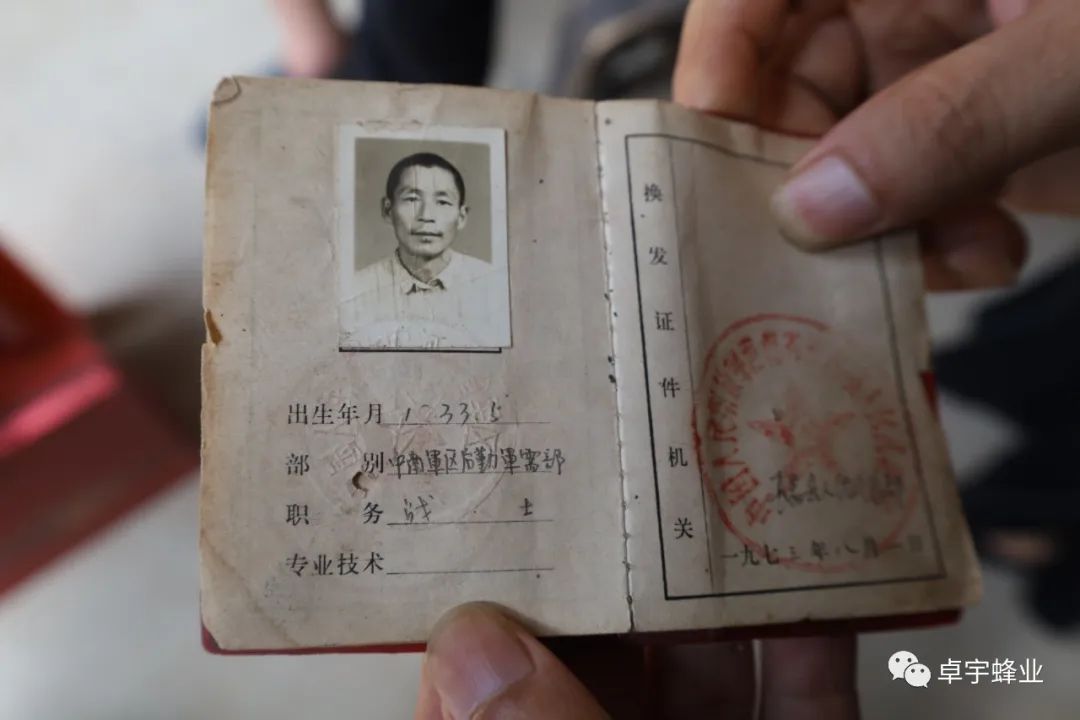 出生年月 1933.5
部别 中南軍区后勤軍需部
职务 战士
专业技术
换发证件机关
中国人民解放军
一九七三年八月一日
卓宇蜂业